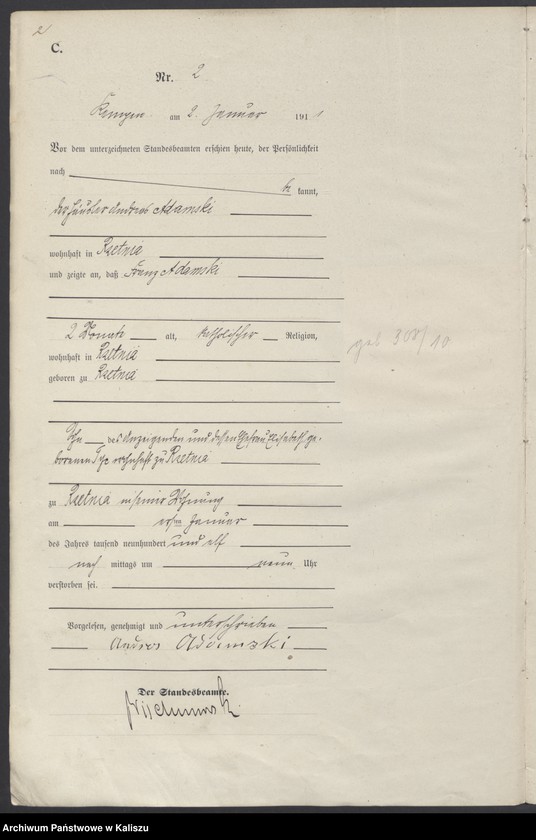 2
C.
Nr. 2
Kempen am 2. Januar 1911
Vor dem unterzeichneten Standesbeamten erschien heute, der Persönlichkeit
nach
be kannt,
der Häusler Andreas Adamski
wohnhaft in Rzetnia
und zeigte an, daß Franz Adamski
2 Monate alt, katholischer Religion,
wohnhaft in Rzetnia
geb 308/10
geboren zu Rzetnia
Sohn des Anzeigenden und dessen Ehefrau Elisabeth ge-
borenen wohnhaft zu Rzetnia
zu Rzetnia in seiner Wohnung
am ersten Januar
des Jahres tausend neunhundert und elf
nach mittags um neun Uhr
verstorben sei.
Vorgelesen, genehmigt und unterschrieben
Andreas Adamski
Der Standesbeamte.
Archiwum Państwowe w Kaliszu